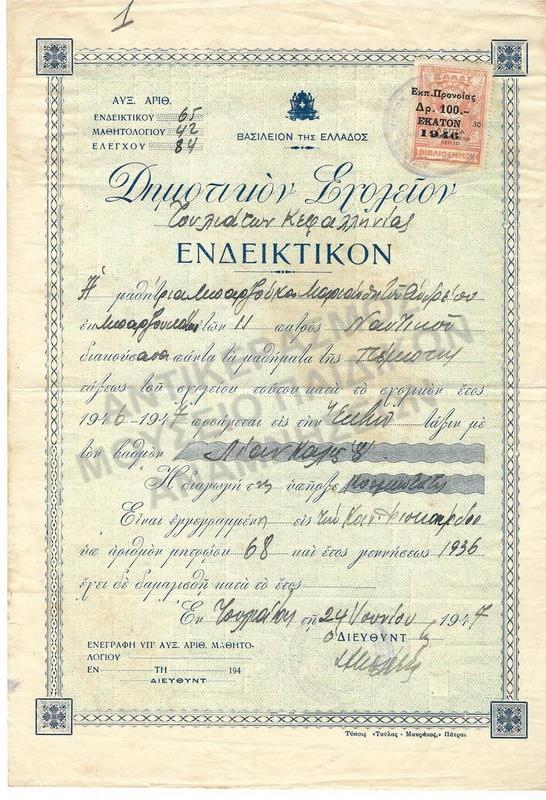 1
ΑΥΞ. ΑΡΙΘ.
ΕΝΔΕΙΚΤΙΚΟΥ 65
ΜΑΘΗΤΟΛΟΓΙΟΥ 42
ΕΛΕΓΧΟΥ 84
ΒΑΣΙΛΕΙΟΝ ΤΗΣ ΕΛΛΑΔΟΣ
ΕΛΛΑΣ
Εκπ. Προνοίας
Δρ. 100.-
ΕΚΑΤΟΝ
30
1946
ΛΕΠΤΟ
ΒΙΒΛΙΟΣΗΜΟΝ
Δημοτικὸν Σχολεῖον
Τουλιάτων Κεφαλληνίας
ΕΝΔΕΙΚΤΙΚΟΝ
Ἡ μαθήτρια τοῦ Ἀνδρέου
ἐκ ἐτῶν 11 πατρὸς Ναυτικοῦ
διανούσασα πάντα τὰ μαθήματα τῆς Πέμπτης
τάξεως τοῦ σχολείου τούτου κατὰ τὸ σχολικὸν ἔτος
1946-1947 προάγεται εἰς τὴν Ἕκτην τάξιν μὲ
τὸν βαθμὸν Λίαν καλῶς 8
Ἡ διαγωγή της ὑπῆρξε κοσμιωτάτη
Εἶναι ἐγγεγραμμένη εἰς τὴν Κοιν.
ὑπ' ἀριθμὸν μητρῴου 68 καὶ ἔτος γεννήσεως 1936
ἔχει δὲ δαμαλισθῆ κατὰ τὸ ἔτος
Ἐν τῇ 24 Ἰουνίου 1947
Ο ΔΙΕΥΘΥΝΤ ής
ΕΝΕΓΡΑΦΗ ΥΠ' ΑΥΞ. ΑΡΙΘ. ΜΑΘΗΤΟ-
ΛΟΓΙΟΥ
ΕΝ ΤΗ 194
ΔΙΕΥΘΥΝΤ
Τύποις «Τούλας - Μαυράκος», Πάτραι
ΑΝΤΙΚΕΡ
ΜΟΥΣΕΙΟ ΠΑΝΑΙΚΟΝ